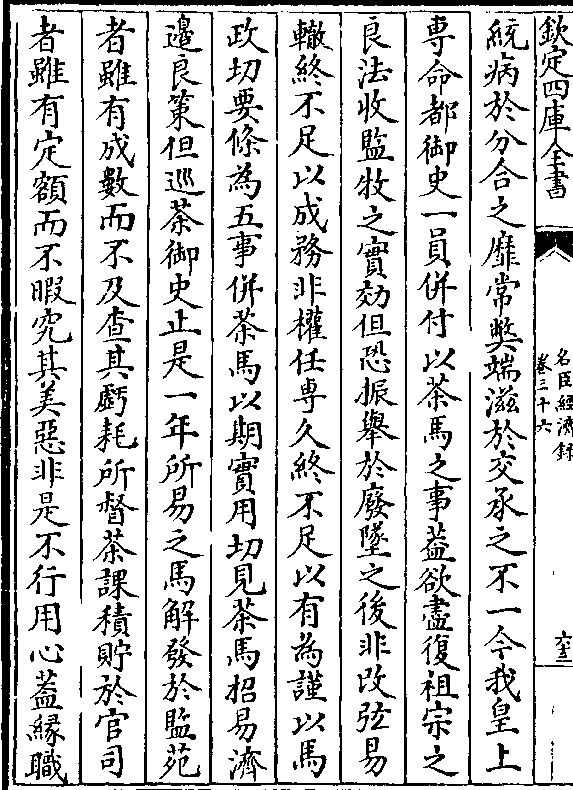 欽定四庫全書
名臣經濟録
卷三十六
六十三
統病於分合之靡常弊端滋於交承之不一今我皇上
専命都御史一員併付以茶馬之事葢欲盡復祖宗之
良法收監牧之實効但恐振舉於廢墜之後非改弦易
轍終不足以成務非權任専久終不足以有為謹以馬
政切要條為五事併茶馬以期實用切見茶馬招易濟
邊良策但巡茶御史止是一年所易之馬解發於監苑
者雖有成數而不及查其虧耗所督茶課積貯於官司
者雖有定額而不暇究其美惡非是不行用心葢縁職